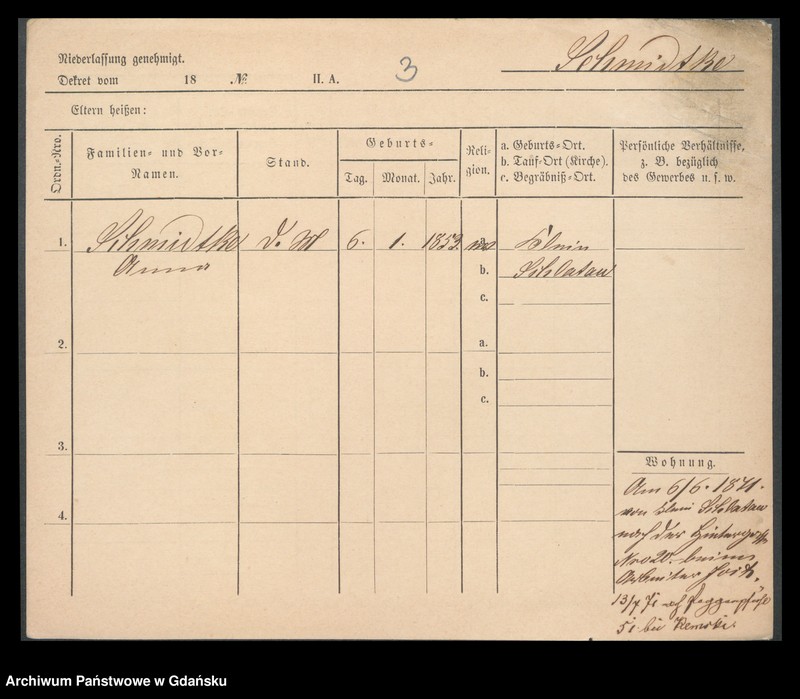 Niederlassung genehmigt.
Dekret vom 18 No. II. A.
3
Schmidtke
Eltern heißen:
Ordn.-Nro.
Familien- und Vor-
Namen.
Stand.
Geburts-
Tag. Monat. Jahr.
Reli-
gion.
a. Geburts-Ort.
b. Tauf-Ort (Kirche).
c. Begräbniß-Ort.
Persönliche Verhältnisse,
z. B. bezüglich
des Gewerbes u. s. w.
1. Schmidtke d. M 6. 1. 1853. a. Klein
Anna b. Schlatau
c.
2. a.
b.
c.
3.
4.
Wohnung.
Am 6/6. 1871.
von Klein Schlatau
nach der Hintergasse
Nro 20. beim
Arbeiter
13/7 71 Poggenpfuhl
51 bei
Archiwum Państwowe w Gdańsku